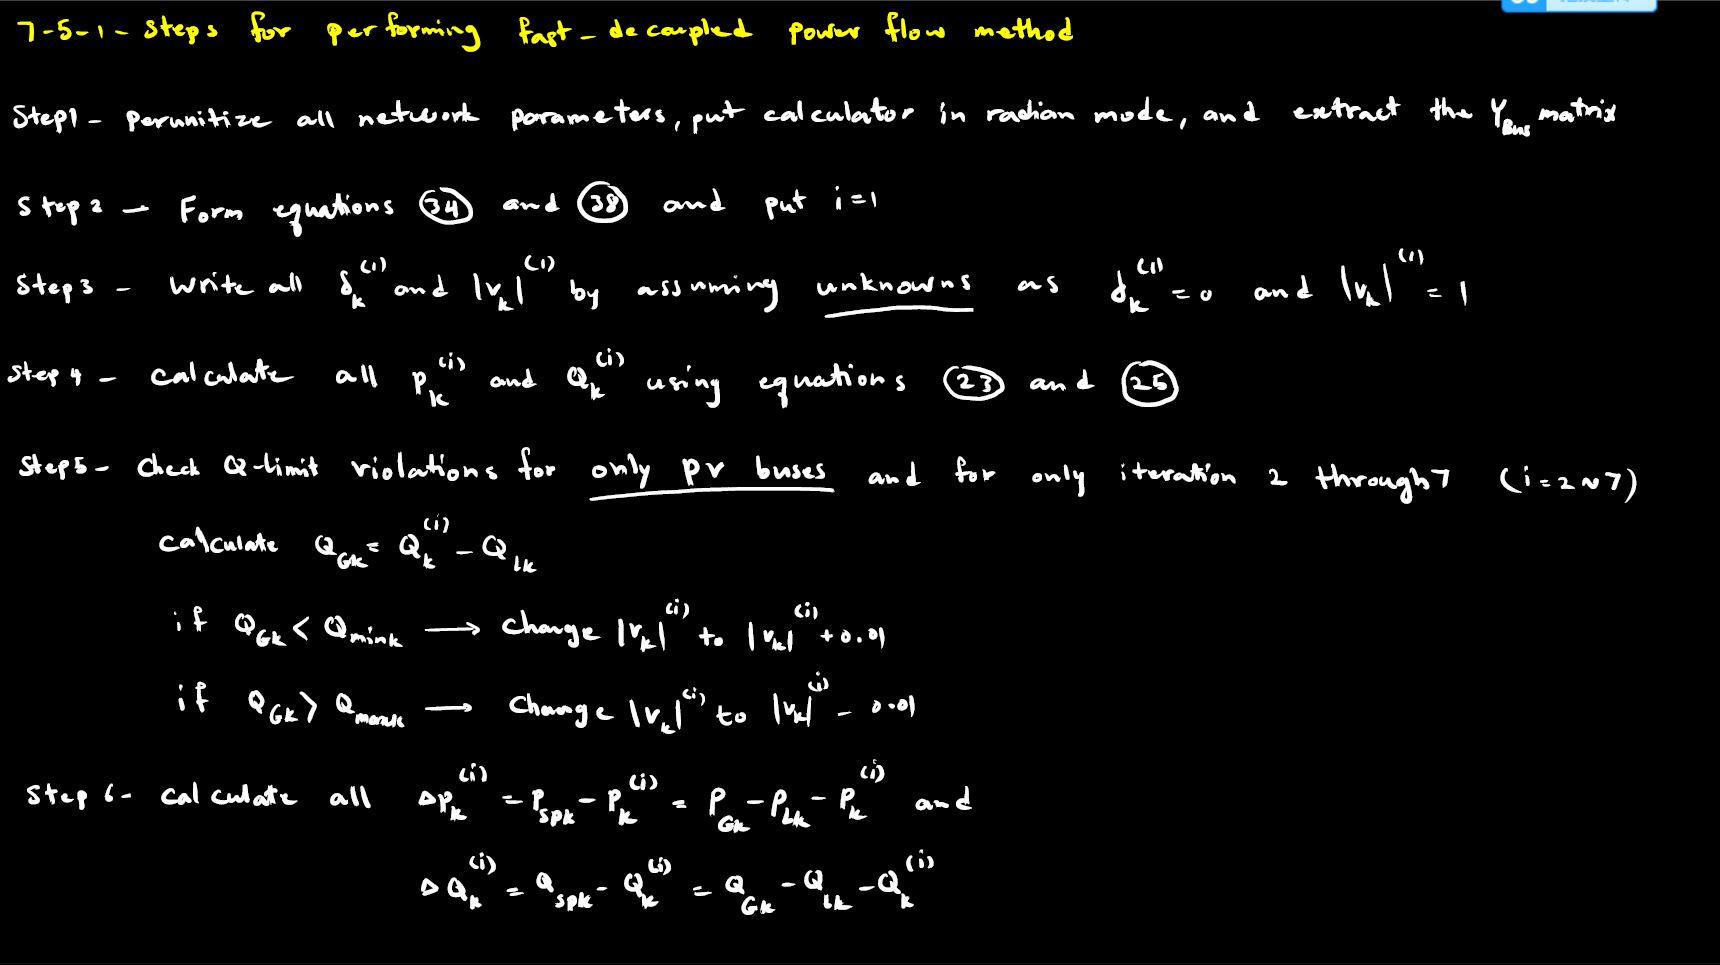 7-5-1- Steps for performing fast-decoupled power flow method
Step1- perunitize all network parameters, put calculator in radian mode, and extract the Y_Bus matrix
Step2- Form equations (34) and (38) and put i=1
Step3- Write all δ_k^(1) and |V_k|^(1) by assuming unknowns as δ_k^(1) = 0 and |V_k|^(1) = 1
Step4- calculate all P_k^(i) and Q_k^(i) using equations (23) and (25)
Step5- Check Q-limit violations for only PV buses and for only iteration 2 through 7 (i=2~7)
calculate Q_Gk = Q_k^(i) - Q_Lk
if Q_Gk < Q_mink → change |V_k|^(i) to |V_k|^(i) + 0.01
if Q_Gk > Q_maxk → change |V_k|^(i) to |V_k|^(i) - 0.01
Step 6- calculate all ΔP_k^(i) = P_spk - P_k^(i) = P_Gk - P_Lk - P_k^(i) and
ΔQ_k^(i) = Q_spk - Q_k^(i) = Q_Gk - Q_Lk - Q_k^(i)